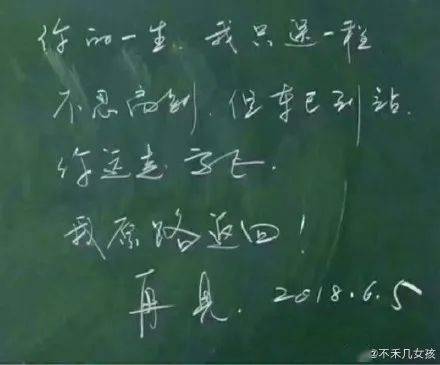 你的一生.我只送一程
不忍离别.但车已到站.
你远走高飞.
我原路返回!
再见. 2018.6.5
@不禾几女孩